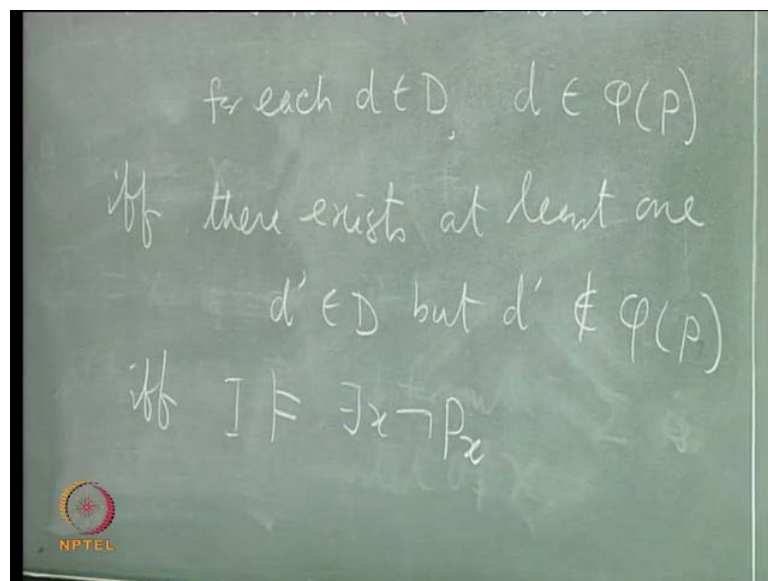 for each d ∈ D, d ∈ φ(P)
iff there exists at least one
d' ∈ D but d' ∉ φ(P)
iff I ⊨ ∃x¬Px
NPTEL